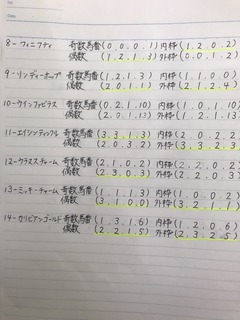 8-フィニフティ 奇数馬番(0.0.0.1) 内枠(1.2.0.2)
偶数(1.2.1.3) 外枠(0.0.1.2)
9-リンディーホップ 奇数馬番(1.2.1.3) 内枠(1.1.0.0)
偶数(2.0.1.1) 外枠(2.1.2.4)
10-ウインファビラス 奇数馬番(0.2.1.10) 内枠(0.1.2.10)
偶数(2.2.2.13) 外枠(1.2.1.13)
11-エイシンティンクル 奇数馬番(3.3.1.3) 内枠(2.0.2.2)
偶数(2.0.3.2) 外枠(3.3.2.3)
12-ウラヌスチャーム 奇数馬番(2.1.0.2) 内枠(2.2.0.2)
偶数(2.3.0.3) 外枠(2.2.0.3)
13-ミッキーチャーム 奇数馬番(1.1.1.3) 内枠(1.0.0.2)
偶数(3.1.0.0) 外枠(3.2.1.1)
14-カリビアンゴールド 奇数馬番(1.3.1.6) 内枠(1.2.0.6)
偶数(2.2.1.5) 外枠(2.3.2.5)